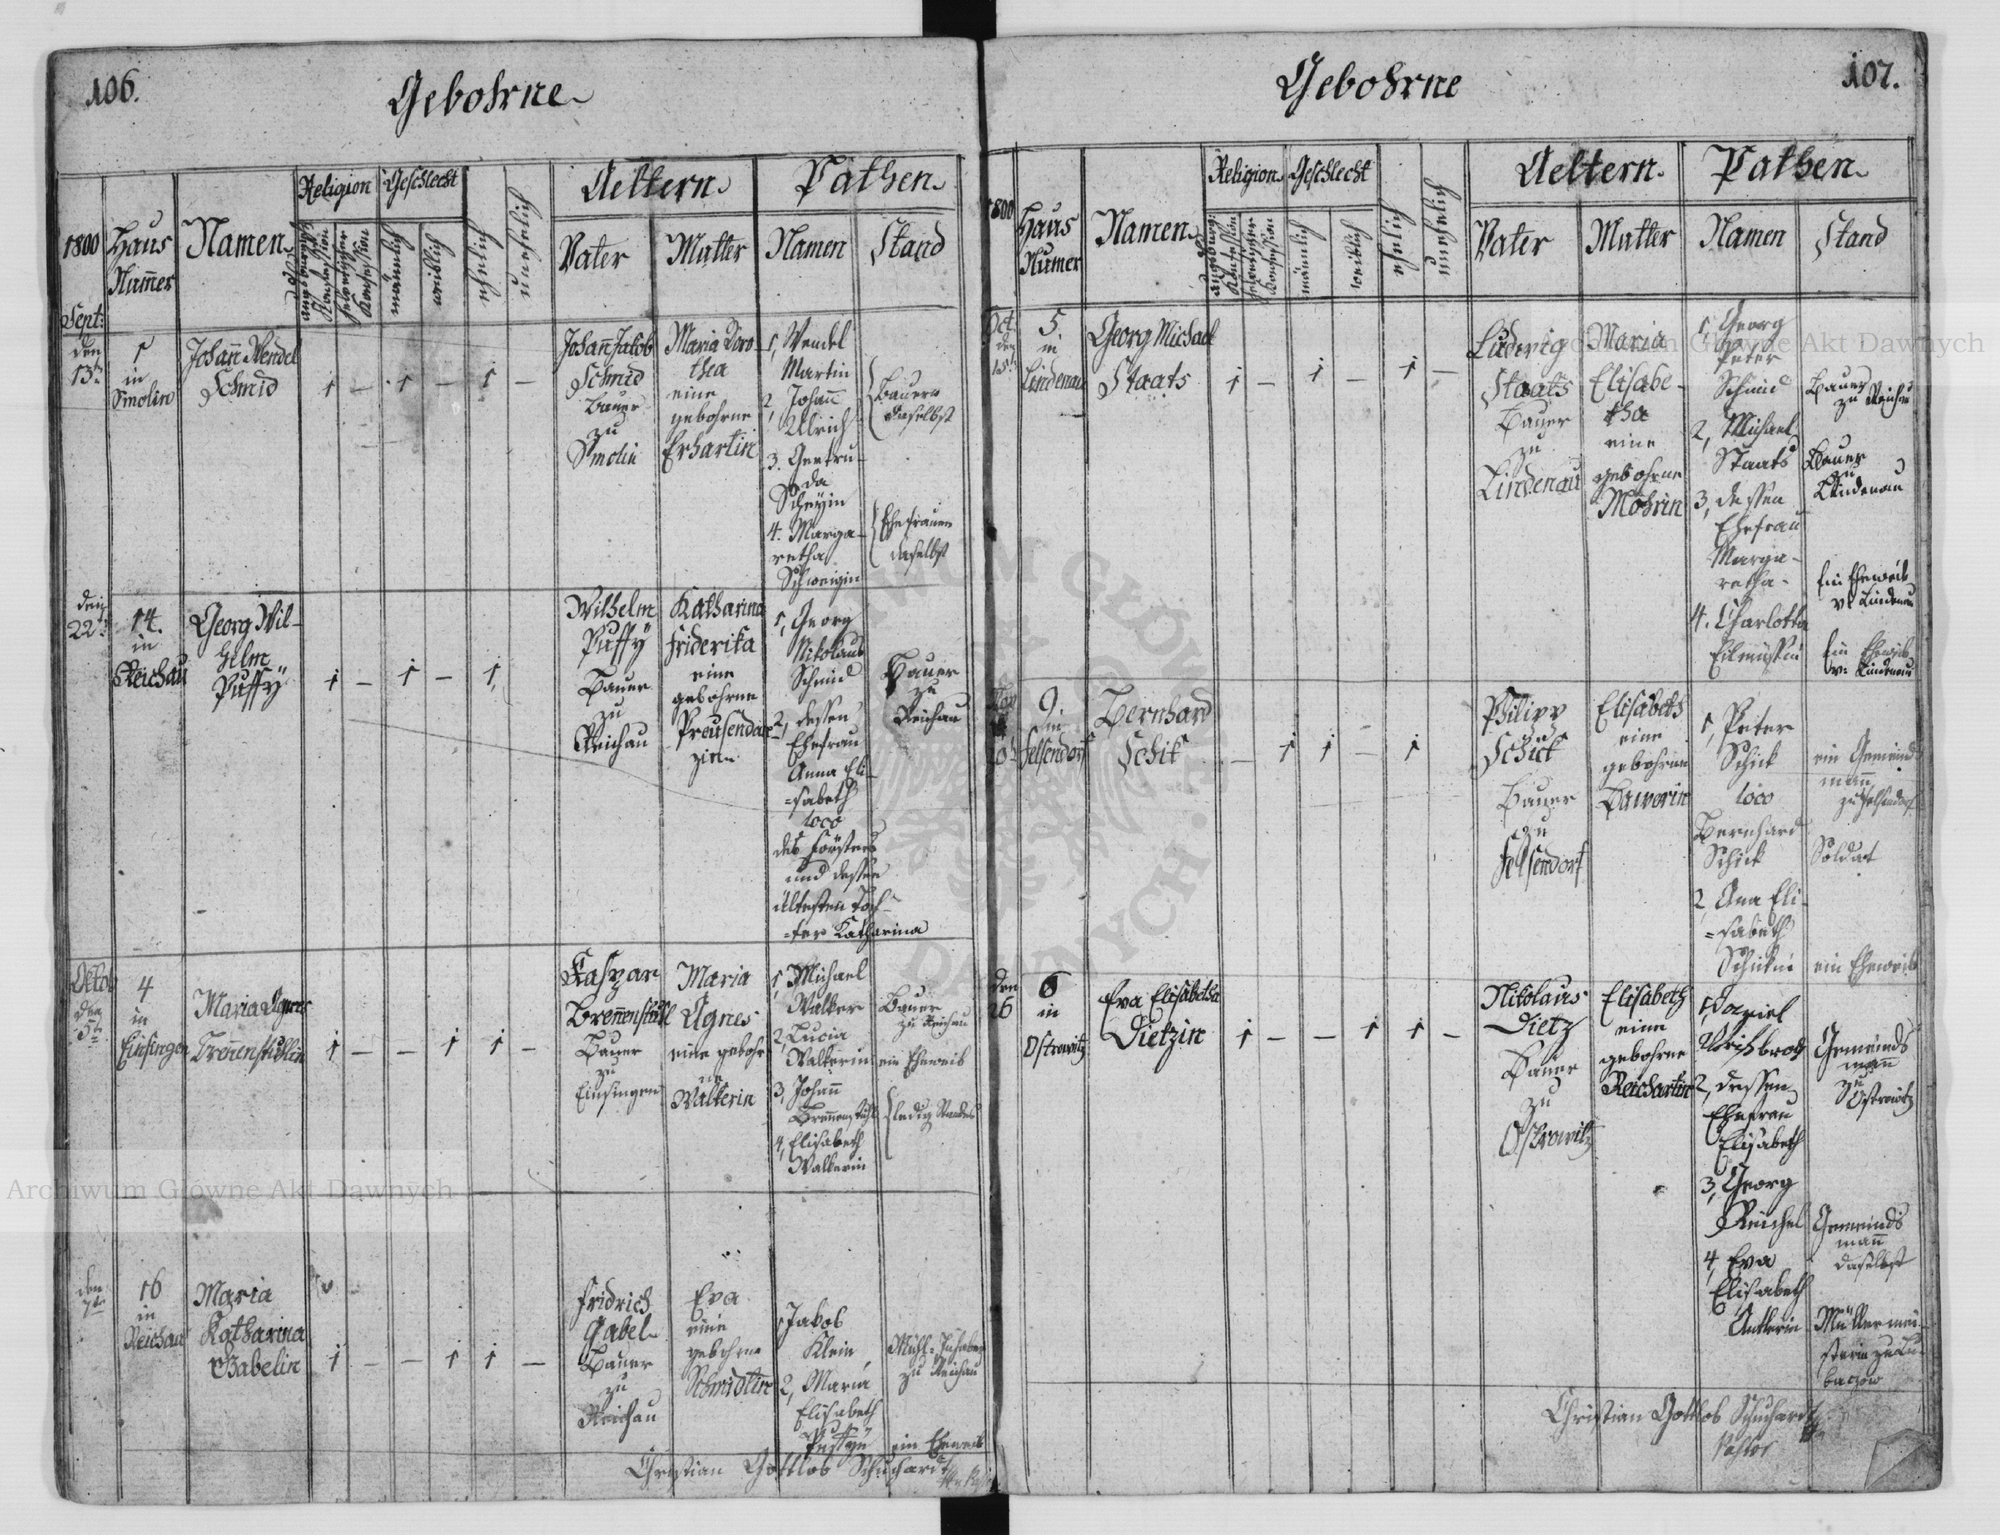 106.
Gebohrne
1800
Sept:
Haus
Num̄er
Namen
Religion
Geschlecht
männlich
weiblich
ehelich
unehelich
Aeltern.
Vater
Mutter
Pathen.
Namen
Stand
den
13t
1
in
Smolin
Johan̄ Wendel
Schmid
1 — 1 — 1 —
Johan̄ Jakob
Schmid
Bauer
zu
Smolin
Maria Doro
thea
eine
gebohrne
Erhartin
1, Wendel
Martin
2, Johan̄
Ulrich
3. Gertru-
da
Scheyin
4. Marga-
retha
Schweigin
Bauern
daselbst
Ehefrauen
daselbst
den
22t
14.
in
Reichau
Georg Wil-
helm
Puffÿ
1 — 1 — 1,
Wilhelm
Puffÿ
Bauer
zu
Reichau
Katharina
Friderika
eine
gebohrne
Preusendan-
zin
1, Georg
Nikolaus
Schmid
2, dessen
Ehefrau
Anna Eli-
=sabeth
loco
des Försters
und dessen
ältesten Toch-
=ter Katharina
Bauer
zu
Reichau
Oktob
den
5t
4
in
Einsingen
Maria Agnes
Brenenstuhlin
1 — — 1 1 —
Kaspar
Bren̄enstuhl
Bauer
zu
Einsingen
Maria
Agnes
eine gebohr
ne
Walterin
1, Michael
Walter
2, Lucia
Walterin
3, Johan̄
Brennenstuhl
4, Elisabeth
Walterin
Bauer
zu Reichau
ein Eheweib
ledig Standes
den
7t
16
in
Reichau
Maria
Katharina
Gabelin
1 — — 1 1 —
Fridrich
Gabel
Bauer
zu
Reichau
Eva
eine
gebohrne
Schmidtin
1, Jakob
Klein
2, Maria
Elisabeth
Puffÿn
Mühl-Inhaber
zu Reichau
ein Eheweib
Christian Gottlob Schuchardt
107.
Gebohrne
1800
Haus
Numer
Namen
Religion
Geschlecht
männlich
weiblich
ehelich
unehelich
Aeltern.
Vater
Mutter
Pathen.
Namen
Stand
Oct.
den
15t
5.
in
Lindenau
Georg Michael
Staats
1 — 1 — 1 —
Ludwig
Staats
Bauer
zu
Lindenau
Maria
Elisabe-
tha
eine
gebohrne
Möhrin
1, Georg
Peter
Schmid
2, Michael
Staats
3, dessen
Ehefrau
Marga-
retha
4. Charlotta
Bauer
zu Reichau
Bauer
zu
Lindenau
Ein Eheweib
v. Lindenau
Ein Eheweib
v. Lindenau
Nov
9.
in
Felsendorf
Bernhard
Schik
— 1 1 — 1
Philipp
Schick
Bauer
zu
Felsendorf
Elisabeth
eine
gebohrne
1, Peter
Schick
loco
Bernhard
Schick
2, Ana Eli-
=sabeth
Schickin
ein Gemeind
man̄
zu Felsendorf
Soldat
ein Eheweib
den
26
6
in
Ostrowitz
Eva Elisabetha
Dietzin
1 — — 1 1 —
Nikolaus
Dietz
Bauer
zu
Ostrowitz
Elisabeth
eine
gebohrne
Reichartin
1, Daniel
2, dessen
Ehefrau
Elisabeth
3, Georg
Reichel
4, Eva
Elisabeth
Gemeinds
man̄
zu
Ostrowitz
Gemeinds
man̄
daselbst
Müllermei-
sterin zu Lu-
baczow
Christian Gottlob Schuchardt
Pastor
Archiwum Główne Akt Dawnych
Archiwum Główne Akt Dawnych
ARCHIWUM GŁÓWNE AKT DAWNYCH